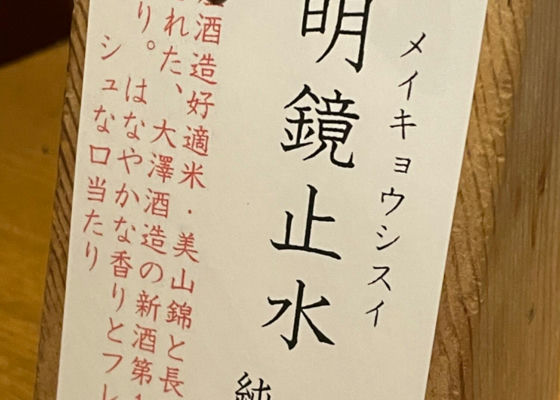 メイキョウシスイ
明鏡止水
純
酒造好適米・美山錦と長
れた、大澤酒造の新酒第
り。はなやかな香りとフレ
シュな口当たり